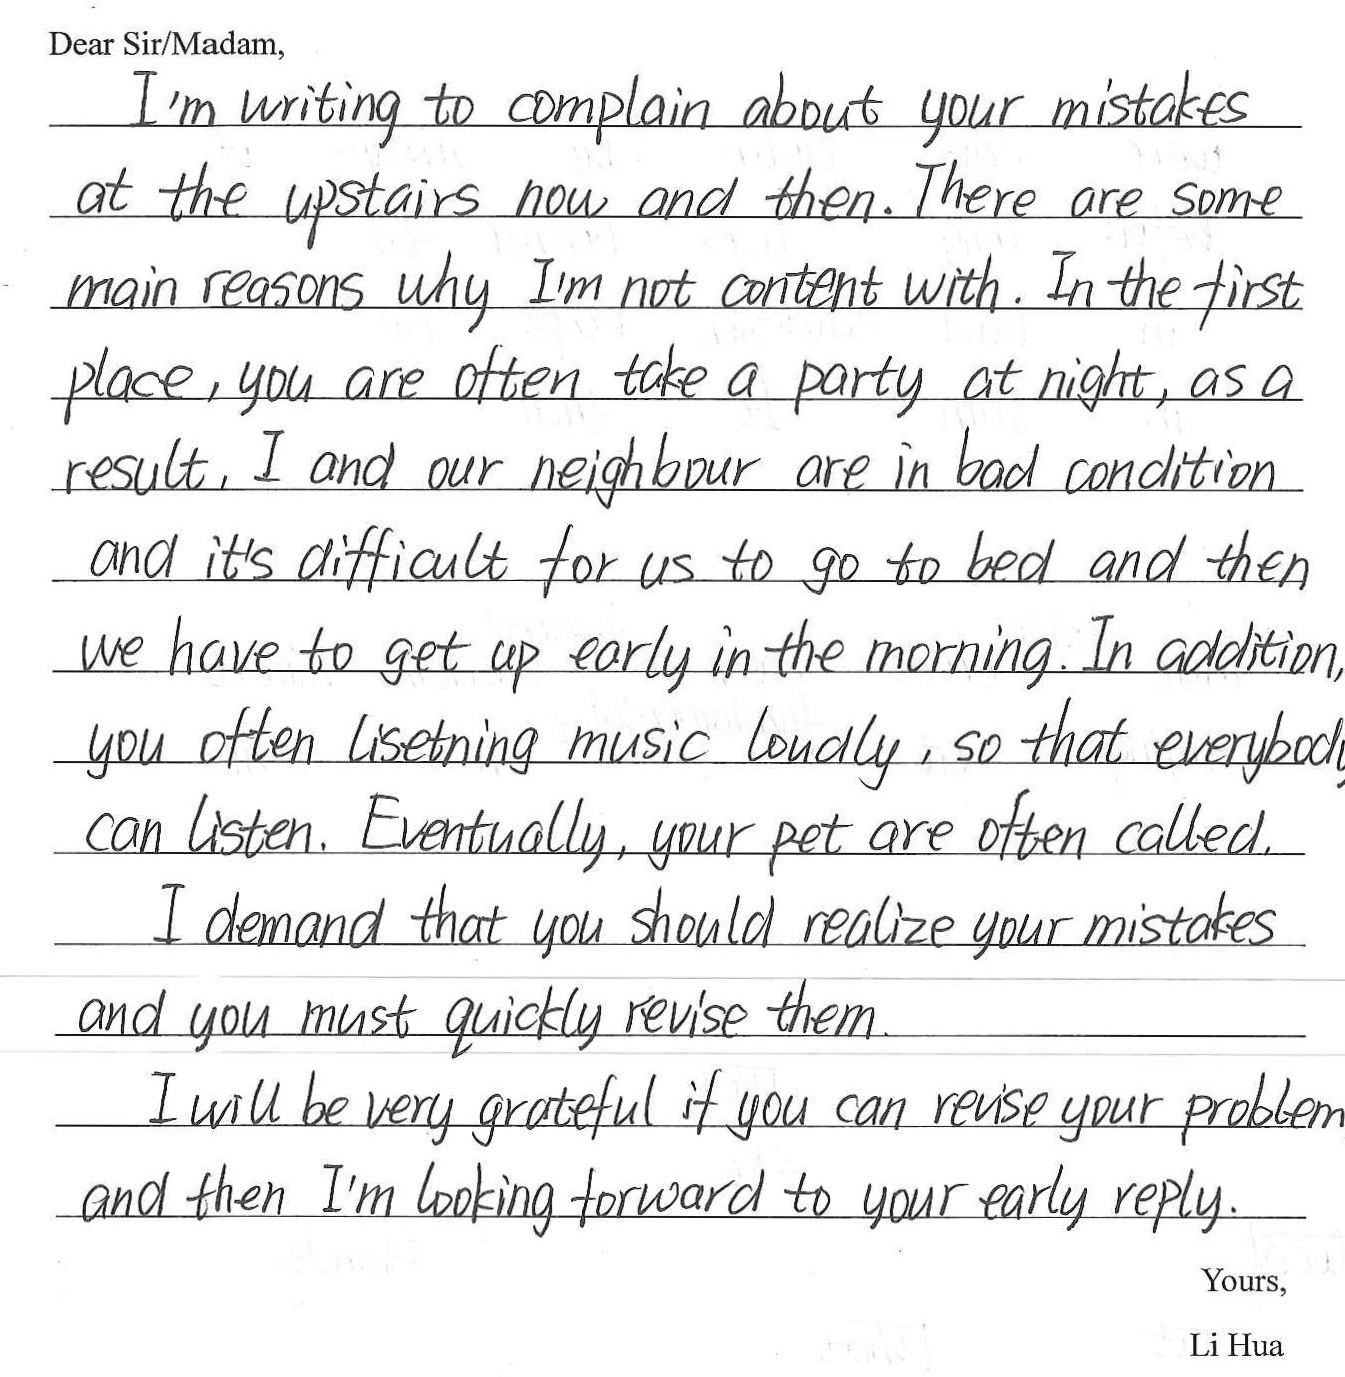 Dear Sir/Madam,
I'm writing to complain about your mistakes
at the upstairs now and then. There are some
main reasons why I'm not content with. In the first
place, you are often take a party at night, as a
result, I and our neighbour are in bad condition
and it's difficult for us to go to bed and then
we have to get up early in the morning. In addition,
you often lisetning music loudly, so that everybody
can listen. Eventually, your pet are often called.
I demand that you should realize your mistakes
and you must quickly revise them.
I will be very grateful if you can revise your problem
and then I'm looking forward to your early reply.
Yours,
Li Hua